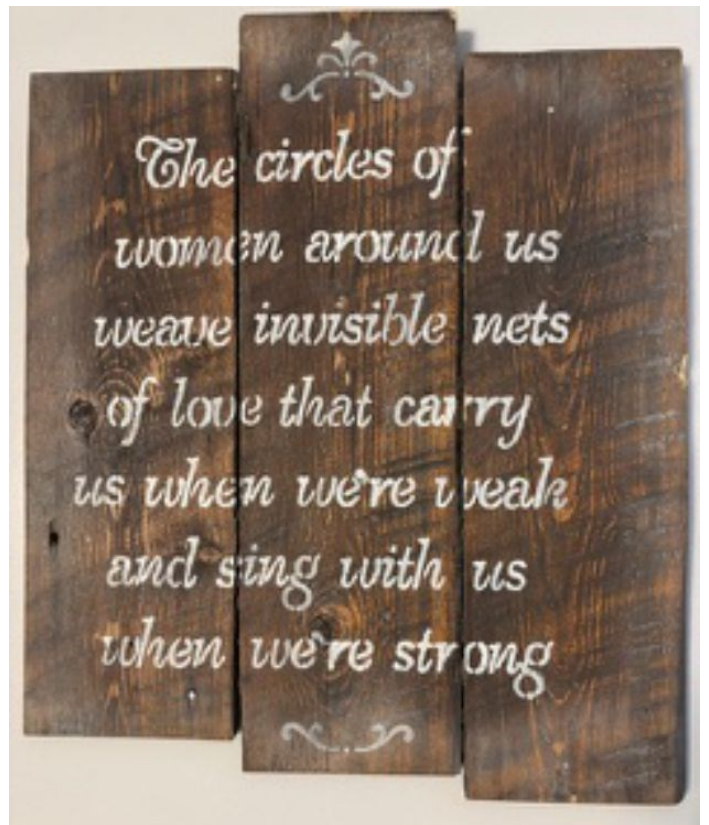 The circles of
women around us
weave invisible nets
of love that carry
us when we're weak
and sing with us
when we're strong